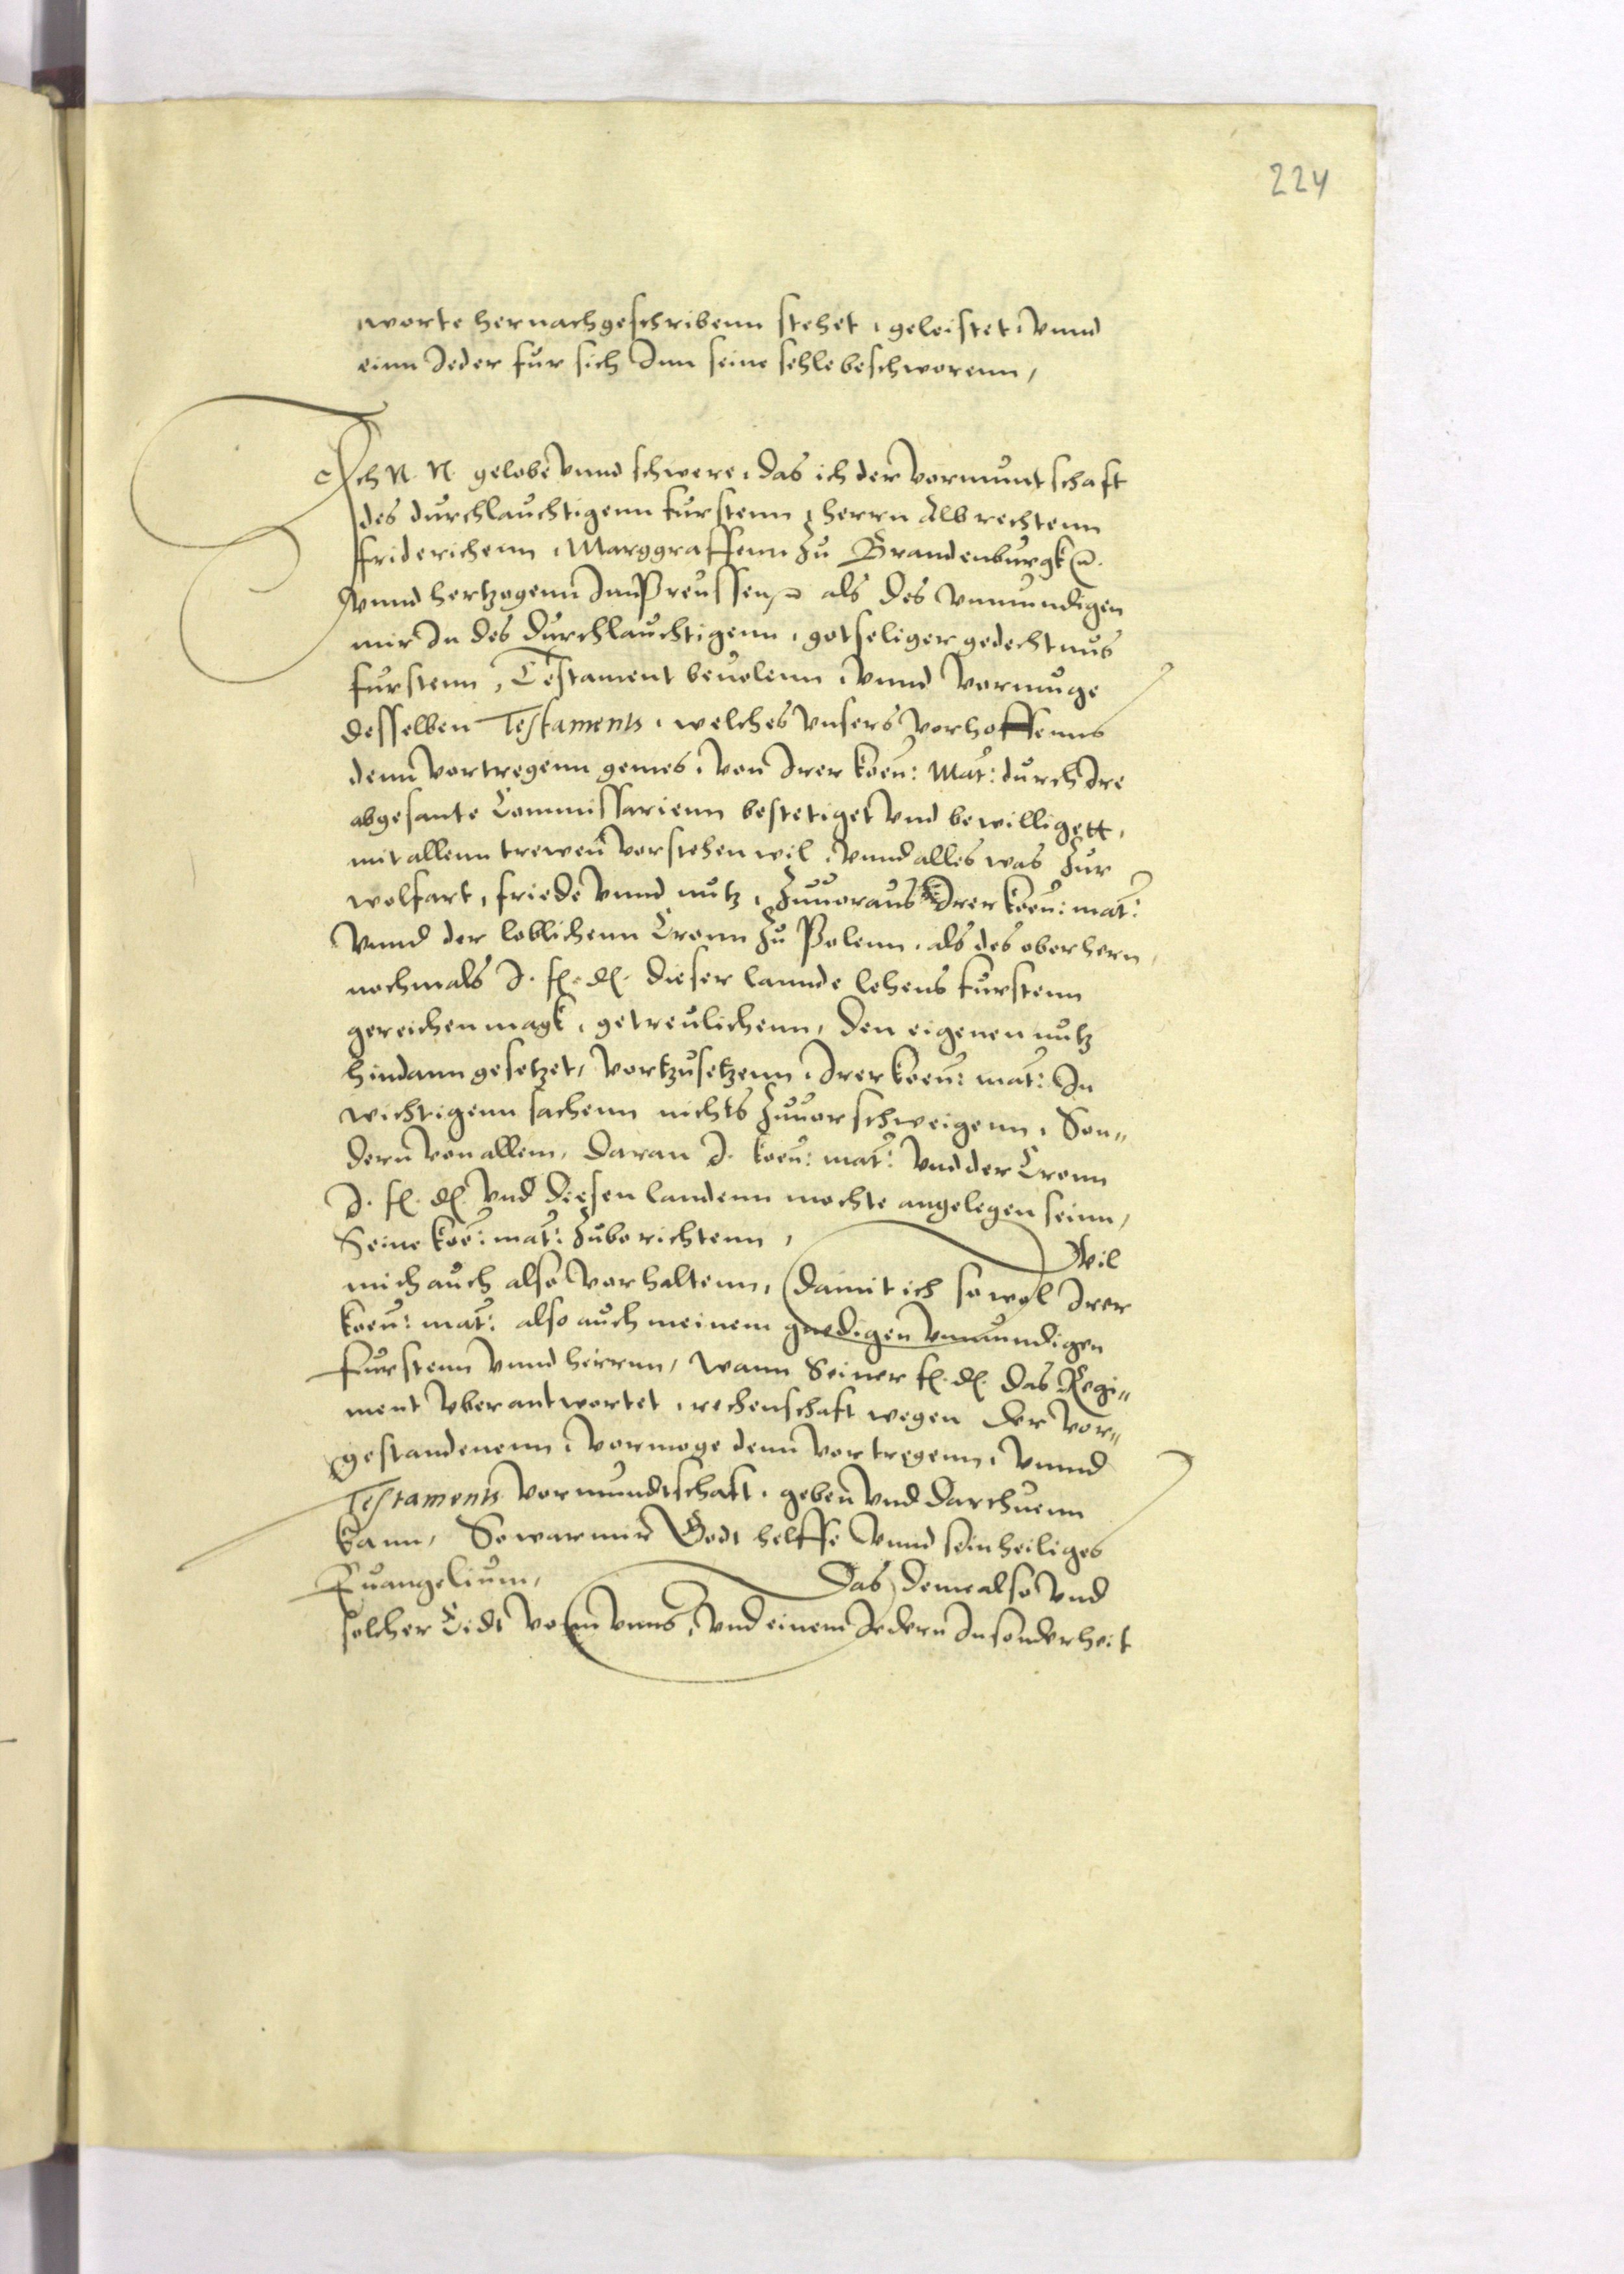 224
worte hernachgeschribenn stehet, geleistet, vnnd
einn Jeder fur sich Inn seine sehle beschworenn,
Ich N. N. gelobe vnnd schwere, das ich der vormuntschaft
des durchlauchtigenn furstenn, herrn Albrechtenn
friderichenn, Marggraffenn zu Brandenburgk
vnnd hertzogenn Inn Preussen, als des vnmundigen
mir In des durchlauchtigenn, gotseliger gedechtnus
furstenn, Testament beuolenn, vnnd vormuge
desselben Testaments, welches vnsers vorhoffenns
denn vortregenn gemes, von Irer koen: Mat: durch Ire
abgesante Commissarienn bestetiget vnd bewilligett,
mit allenn trewen vorstehen wil, vnnd alles was zur
wolfart, friede vnnd nutz, zuuoraus Irer koen: mat:
vnnd der loblichenn Cronn zu Polenn, als des oberhern,
nochmals I. fl. dl. dieser lannde lehens furstenn
gereichen magk, getreulichenn, den eigenen nutz
hindann gesetzet, vortzusetzenn, Irer koen: mat: In
wichtigenn sachenn nichts zuuorschweigenn, Son„
dern von allem, daran I. koen: mat: vnd der Cronn
I. fl. dl. vnd diesen landenn mochte angelegen seinn,
Seine koe: mat: zuborichtenn, Wil
mich auch also vorhaltenn, damit ich so wol Irer
koen: mat: also auch meinem gnedigen vnmundigen
furstenn vnnd herrnn, wann Seiner fl. dl. das Regi„
ment vberantwortet, rechenschaft wegen der vor„
gestandenenn, vormoge denn vortregenn, vnnd
Testaments vormundtschaft, geben vnd darthuenn
kann, So war mir Godt helffe vnnd sein heiliges
Euangelium, Das deme also vnd
solcher Eidt vonn vnns, vnd einem Jedern Insonderheit